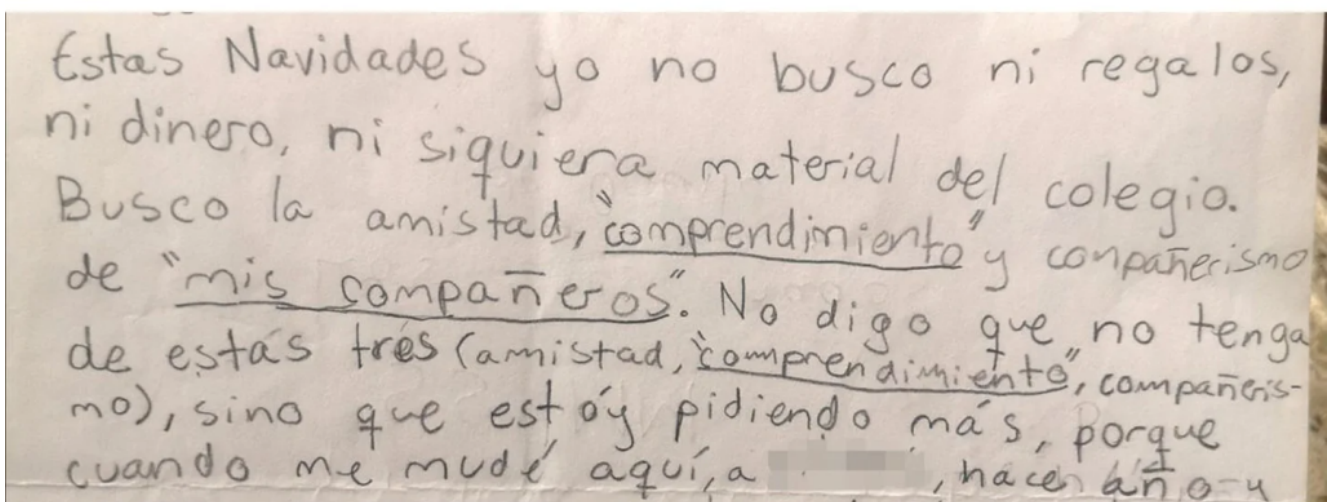 Estas Navidades yo no busco ni regalos,
ni dinero, ni siquiera material del colegio.
Busco la amistad, "comprendimiento" y compañerismo
de "mis compañeros". No digo que no tenga
de estas tres (amistad, "comprendimiento", compañeris-
mo), sino que estoy pidiendo más, porque
cuando me mudé aquí, a , hacen año y